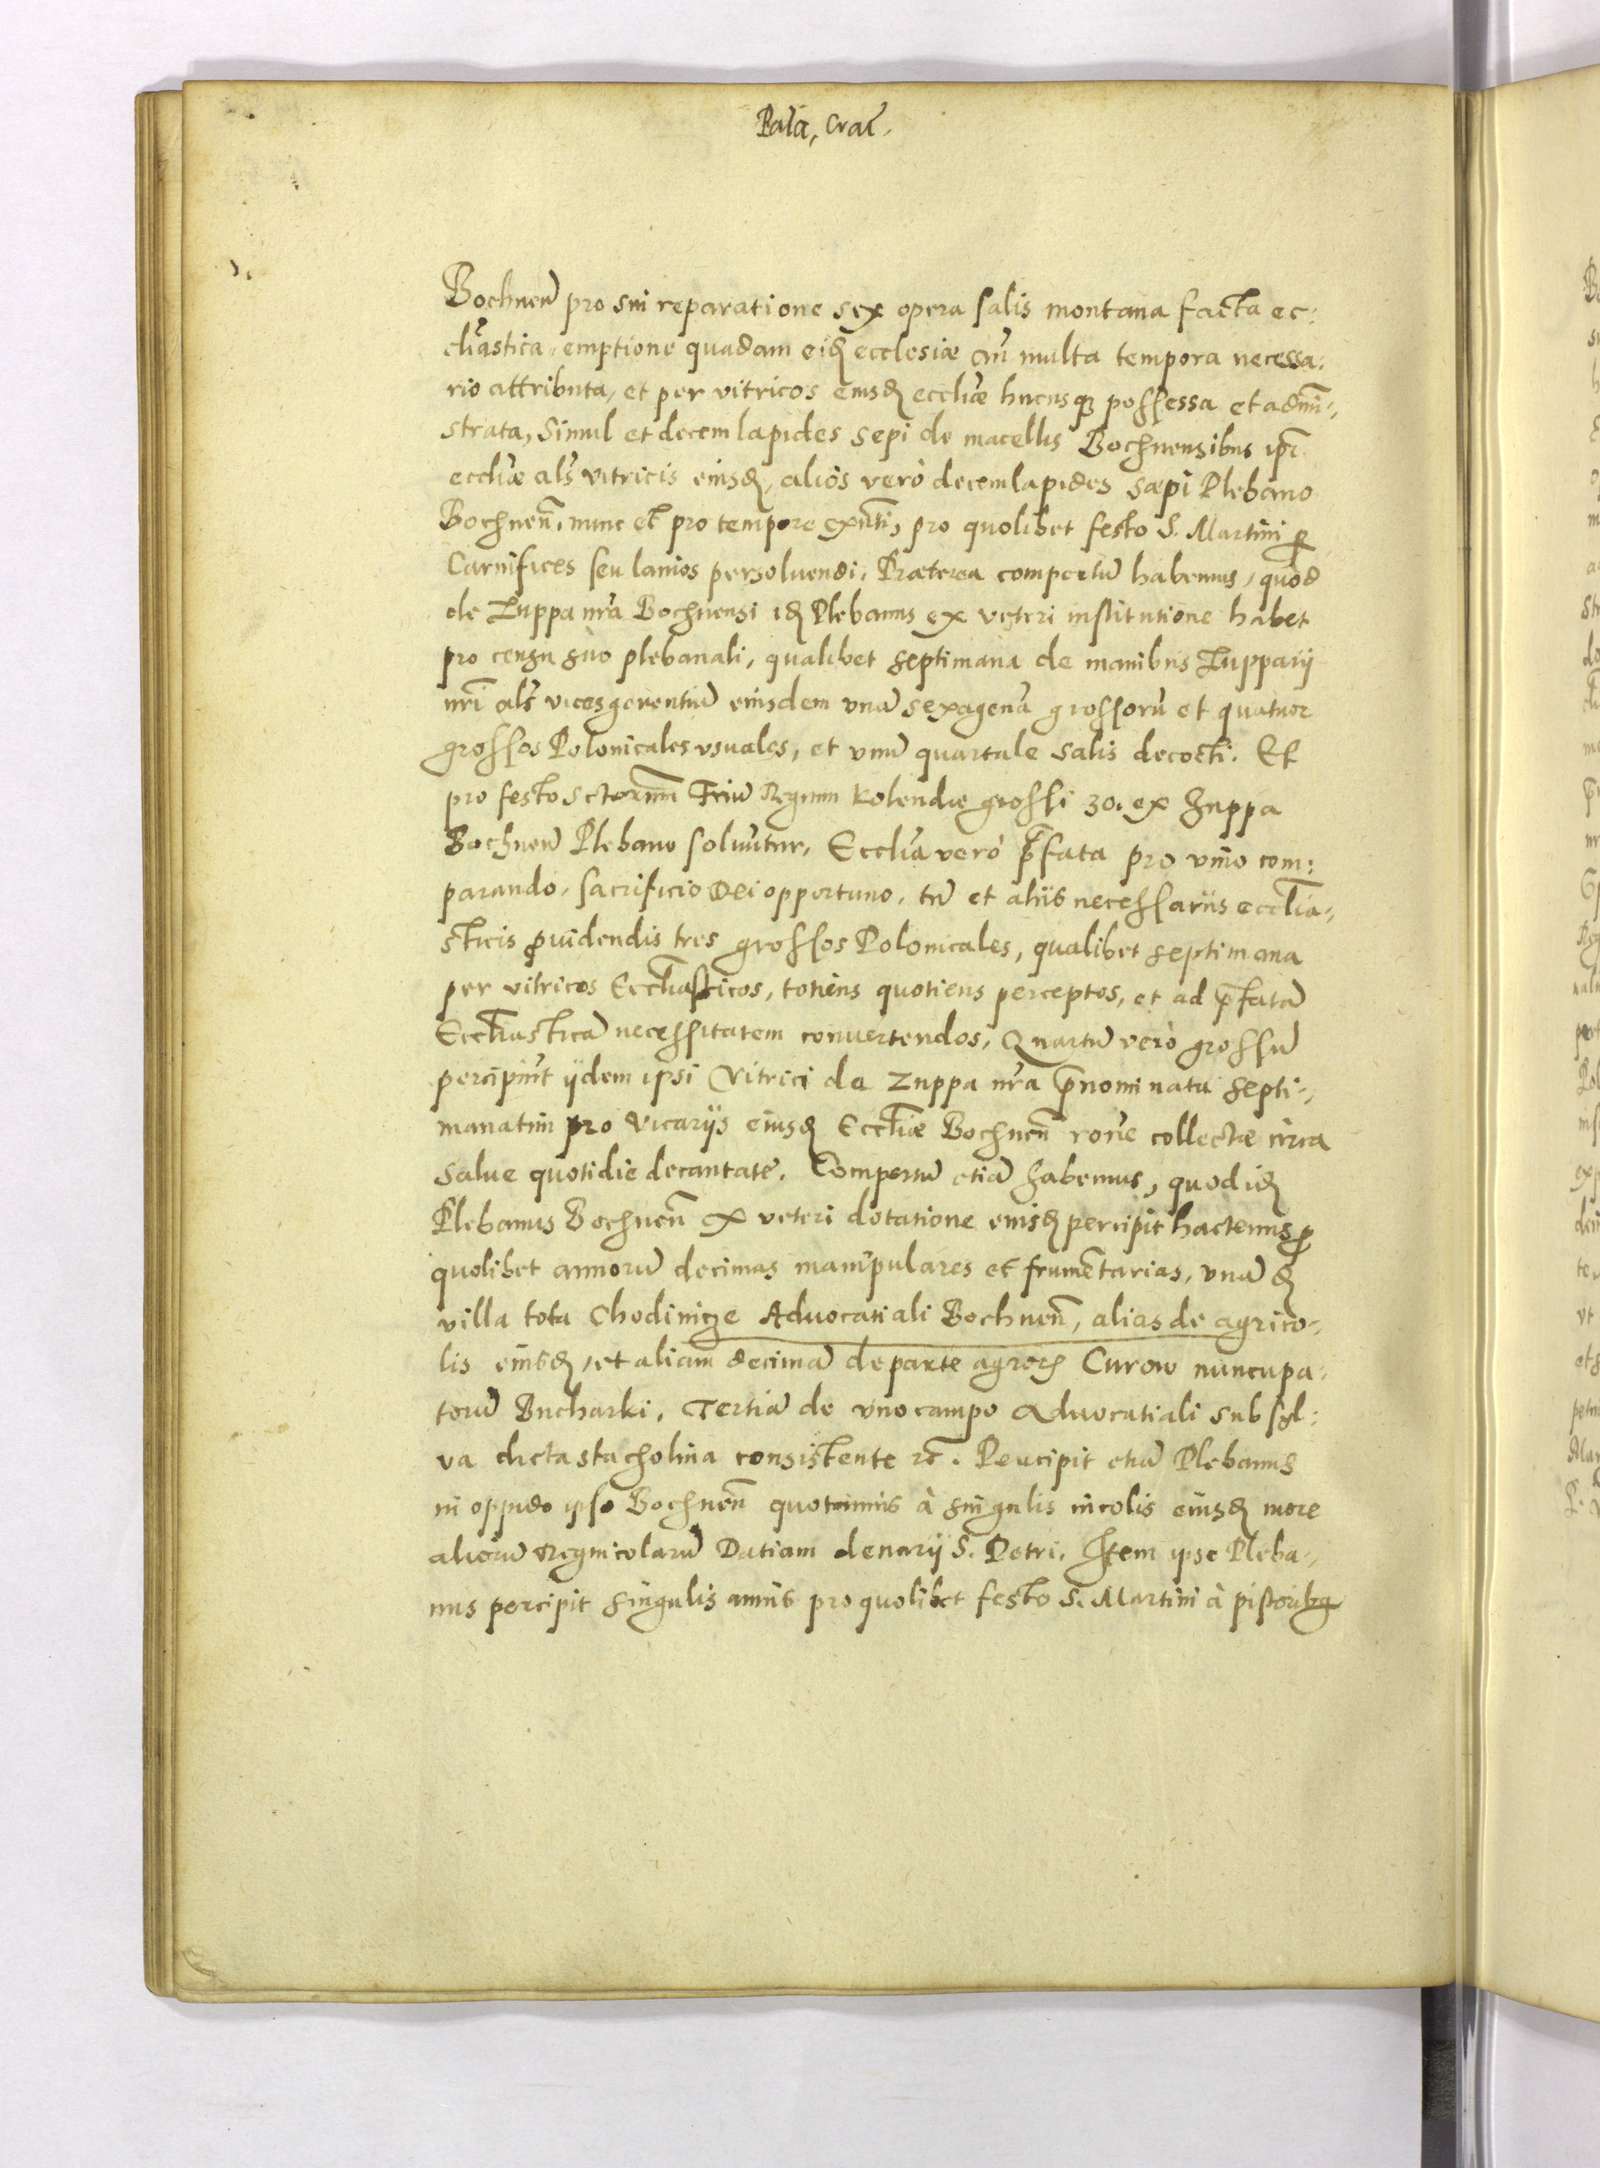 Pala, Crac̃.
Bochneñ pro sui reparatione sex opera salis montana facta ec:
cl̃iastica, emptione quadam eid ecclesiæ añ multa tempora necessa:
rio attributa, et per vitricos eiusd eccl̃iæ hucusq possessa et admĩ-
strata, Simul et decem lapides sepi de macellis Bochnensibus ip̃i
eccl̃iæ als̃ vitricis eiusd, aliòs verò decem lapides sæpi Plebano
Bochneñ, nunc et pro tempore exñti, pro quolibet festo S. Martini p
Carnifices seu lanios persoluendi. Præterea compertũ habemus, quòd
de Zuppa nr̃a Bochnensi id Plebanus ex veteri institutione habet
pro censu suo plebanali, qualibet septimana de manibus Zupparij
nr̃i als̃ vicesgerentiũ eiusdem vnã sexagenã grossorũ et quatuor
grossos Polonicales vsuales, et vnũ quartale salis decocti. Et
pro festo sctorum̃ Triũ Regum Kolendæ grossi 30. ex Zuppa
Bochneñ Plebano soluũtur, Eccl̃ia verò p̃fata pro vino com:
parando, sacrificio Dei opportuno, tũ et aliis necessariis eccl̃ia-
sticis puidendis tres grossos Polonicales, qualibet septimana
per vitricos Eccl̃iasticos, totiens quotiens perceptos, et ad p̃fatã
Eccl̃iasticã necessitatem conuertendos, Quartũ verò grossũ
percipiũt ijdem ipsi Vitrici de Zuppa nr̃a p̃nominata septi-
manatim pro Vicarijs eiusd Eccl̃iæ Bochneñ ror̃e collectæ circa
salue quotidie decantatę. Compertũ etiã habemus, quod id
Plebanus Bochneñ ex veteri dotatione eiusd percipit hactenus p
quolibet annorũ decimas manipulares et frumẽtarias, vnã d
villa tota Chodinicze Aduocatiali Bochneñ, alias de agrico-
lis eiusd, et aliam decimã de parte agror Curow nuncupa-
torũ Bucharki, Tertiã de vno campo Aduocatiali sub syl:
va dicta stacholina consistente etc̃. Percipit etiã Plebanus
in oppido ipso Bochneñ quotannis à singulis incolis eiusd more
aliorũ Regnicolarũ Datiam denarij S. Petri. Item ipse Pleba-
nus percipit singulis annis pro quolibet festo S. Martini à pistoribq